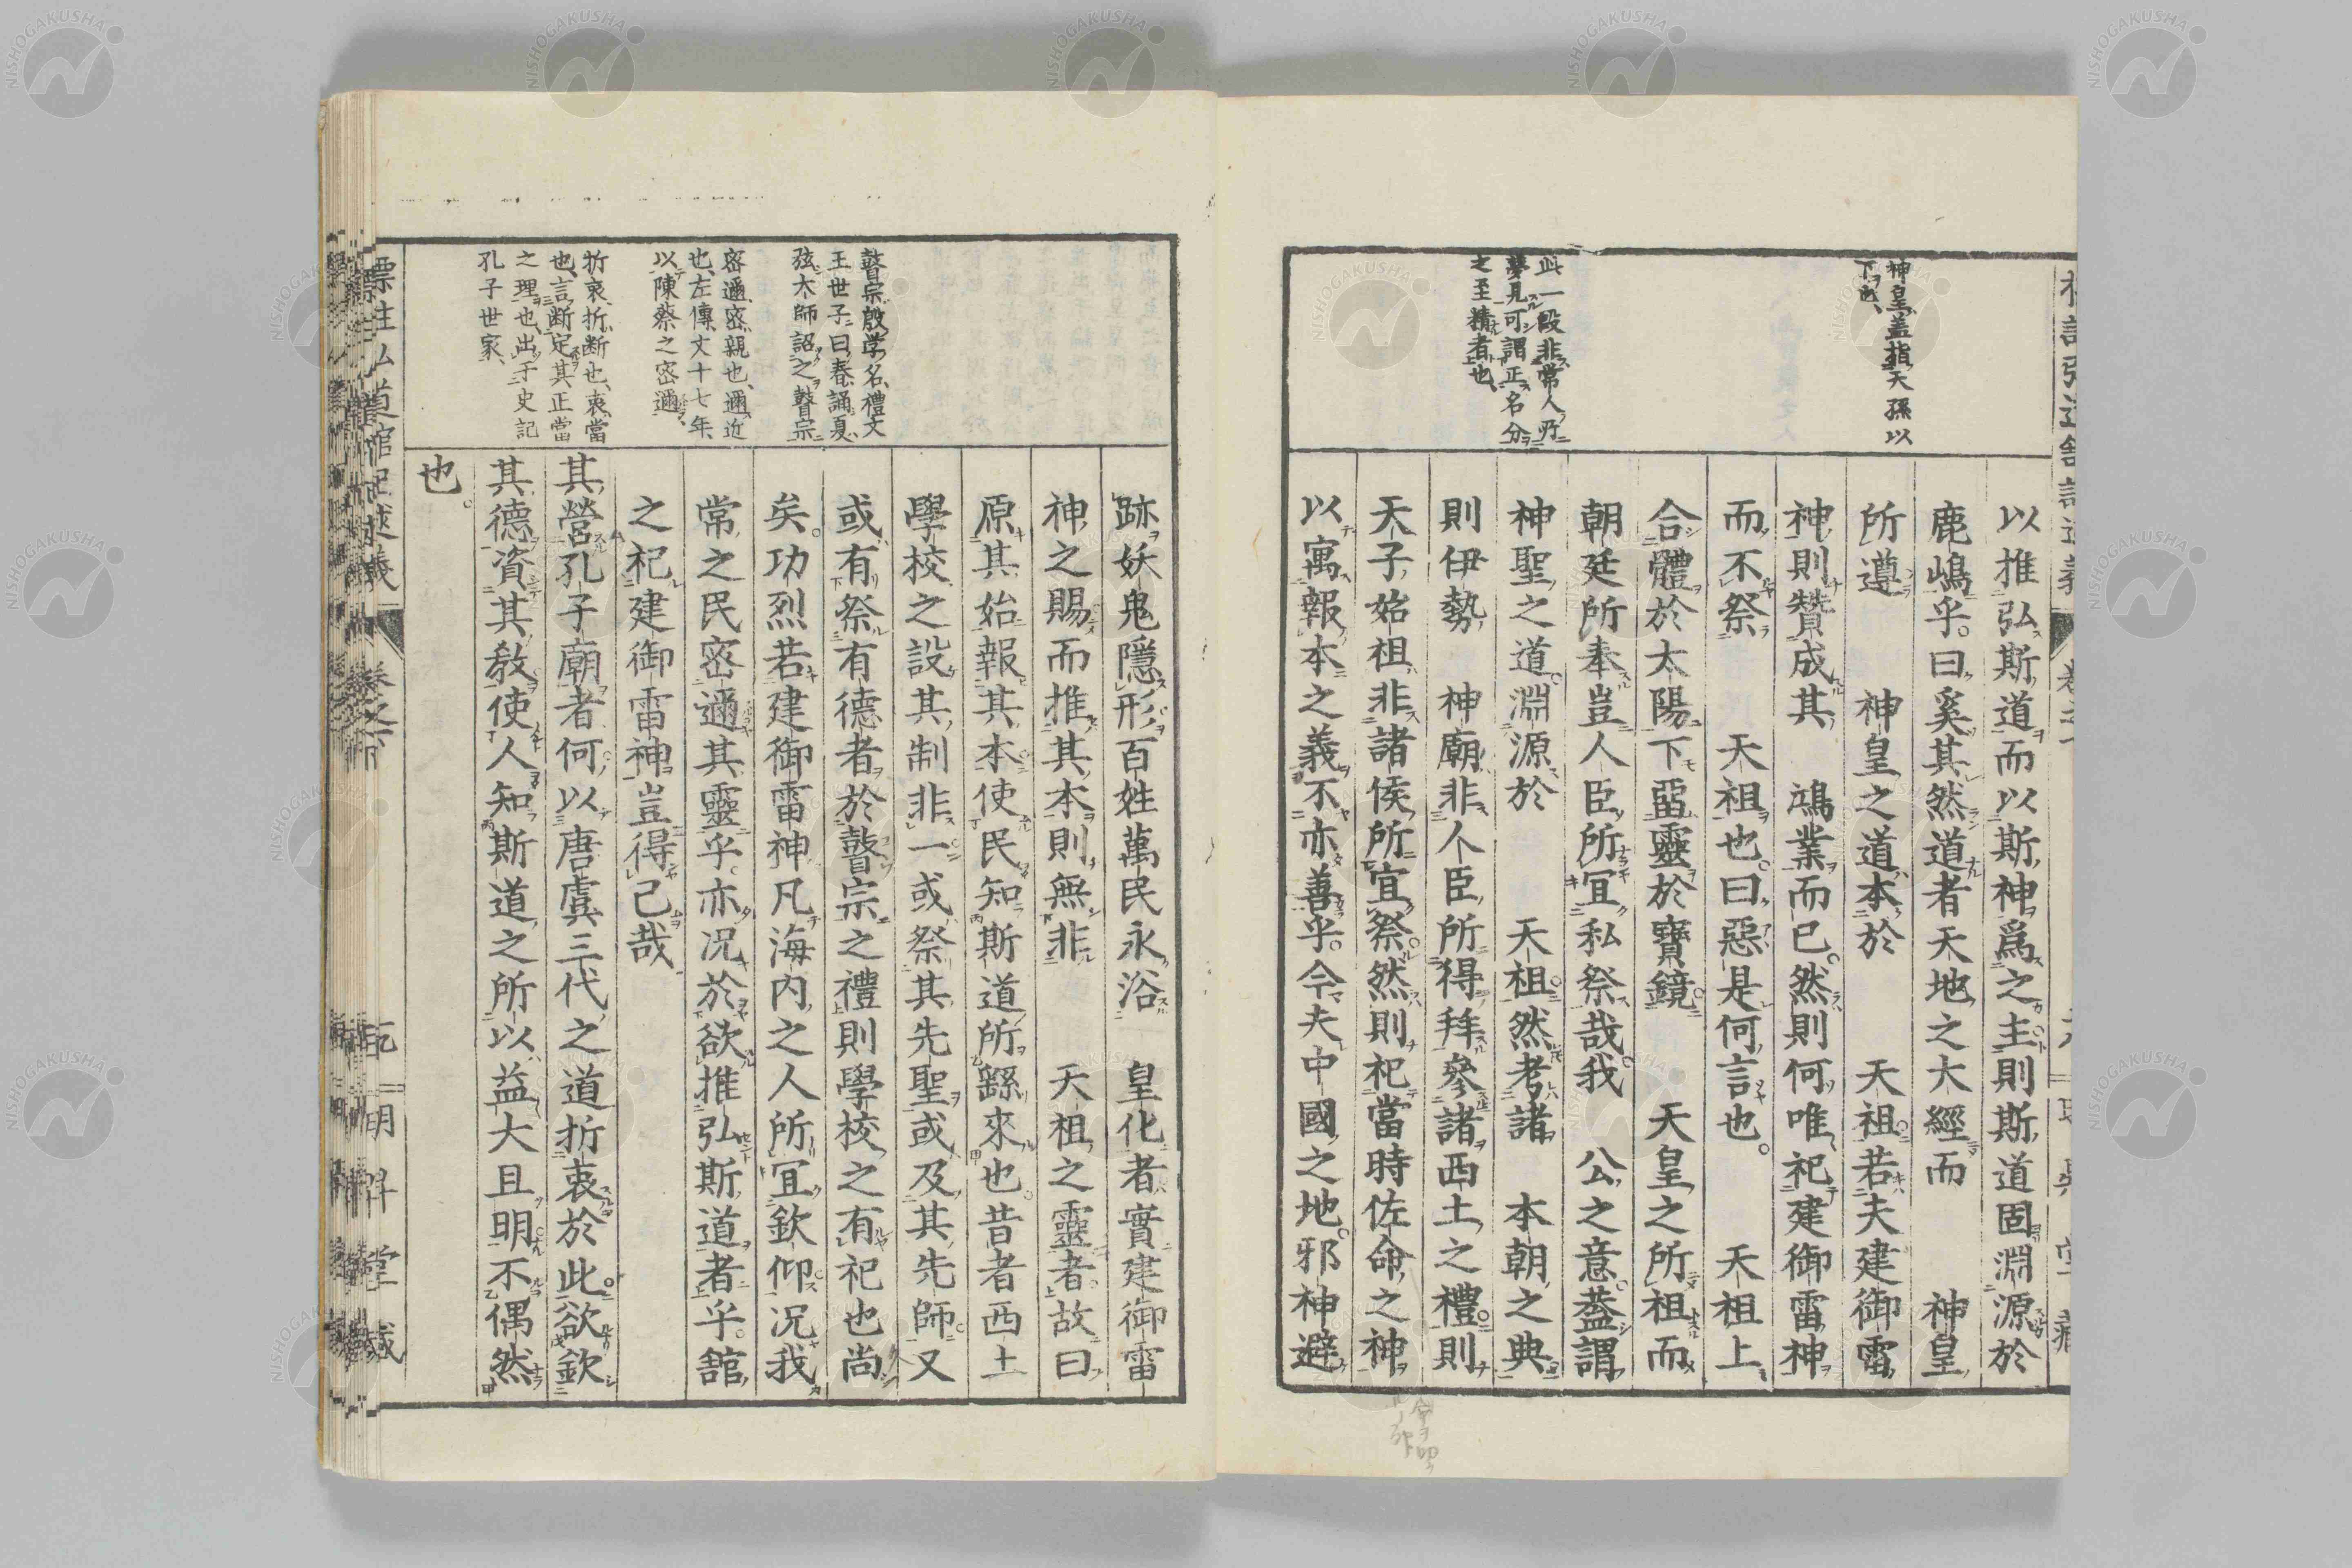 神皇、蓋指天孫以
下也、
此一段非常人所
夢見、可謂正名分
之至精者也、
以推弘斯道而以斯神爲之主則斯道固淵源於
鹿嶋乎。曰奚其然道者天地之大經而　神皇
所遵　神皇之道本於　天祖若夫建御雷
神則贊成其　鴻業而已然則何唯祀建御雷神
而不祭　天祖也。曰惡是何言也。　天祖上
合體於太陽下畱靈於寶鏡　天皇之所祖而
朝廷所奉豈人臣所宜私祭哉我　公之意蓋謂
神聖之道淵源於　天祖然考諸　本朝之典
則伊勢　神廟非人臣所得拜參諸西土之禮則
天子始祖非諸侯所宜祭然則祀當時佐命之神
以寓報本之義不亦善乎。今夫中國之地。邪神避
瞽宗、殷学名、禮文
王世子曰、春誦夏
弦、大師詔之瞽宗
密邇、密、親也、邇、近
也、左傳文十七年、
以陳蔡之密邇、
折衷、折、断也、衷、當
也、言断定其正當
之理也、出于史記
孔子世家、
跡妖鬼隱形百姓萬民永浴　皇化者實建御雷
神之賜而推其本則無非　天祖之靈者故曰
原其始報其本使民知斯道所繇來也。昔者西土
學校之設其制非一或祭其先聖或及其先師又
或有祭有德者於瞽宗之禮則學校之有祀也尚
矣。功烈若建御雷神凡海内之人所宜欽仰况我
常之民密邇其靈乎。亦况於欲推弘斯道者乎。舘
之祀建御雷神豈得已哉
其營孔子廟者何以唐虞三代之道折衷於此欲欽
其德資其教使人知斯道之所以益大且明不偶然
也。
標註弘道館記述義　卷之下